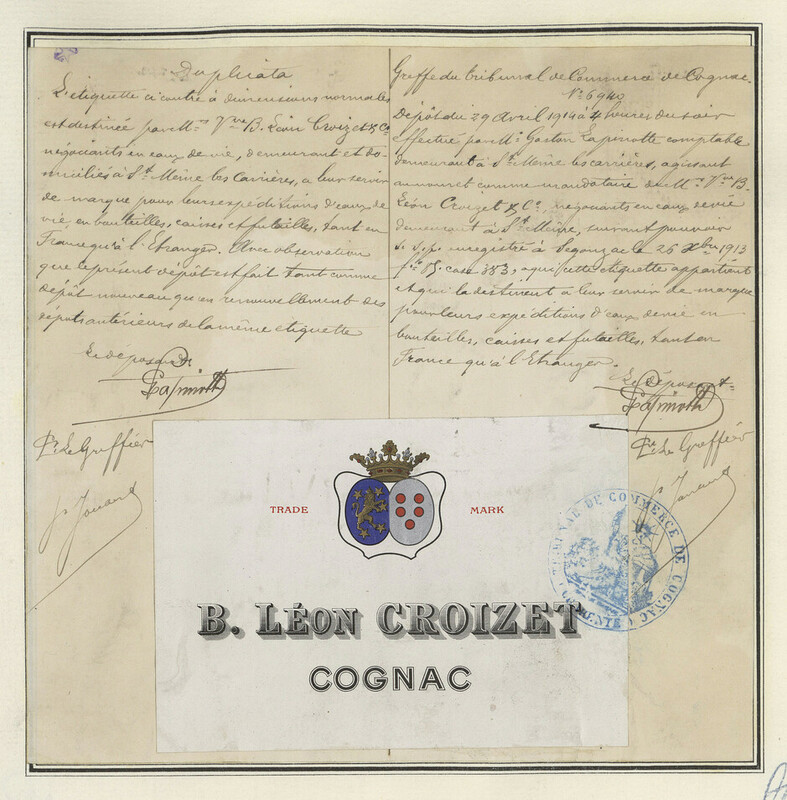 Duplicata
L'étiquette ci contre à dimensions normales
est destinée par Mrs Vve B. Léon Croizet & Cie
négociants en eaux de vie, demeurant et do-
miciliés à St Même les Carrières, a leur servir
de marque pour leurs expéditions d'eaux de
vie en bouteilles, caisses et futailles, tant en
France qu'à l'Etranger. Avec observation
que le présent dépôt est fait tant comme
dépôt nouveau qu'en renouvellement des
dépôts antérieurs de la même étiquette
Le déposant
Pr Le Greffier
Greffe du Tribunal de Commerce de Cognac.
No 6940
Dépôt du 29 Avril 1914 à 4 heures du soir
effectué par Mr Gaston Lapinotte comptable
demeurant à St Même les carrières, agissant
au nom et comme mandataire de Mrs Vve B.
Léon Croizet & Cie, négociants en eaux de vie
demeurant à St Même, suivant pouvoir
s. s. p. enregistré à Segonzac le 26 Xbre 1913
fo 85 case 383, a qui cette étiquette appartient
et qui la destinent a leur servir de marque
pour leurs expéditions d'eaux de vie en
bouteilles, caisses et futailles, tant en
France qu'à l'Etranger.
Le Déposant
Pr Le Greffier
TRADE MARK
B. LÉON CROIZET
COGNAC
TRIBUNAL DE COMMERCE DE COGNAC
(CHARENTE)